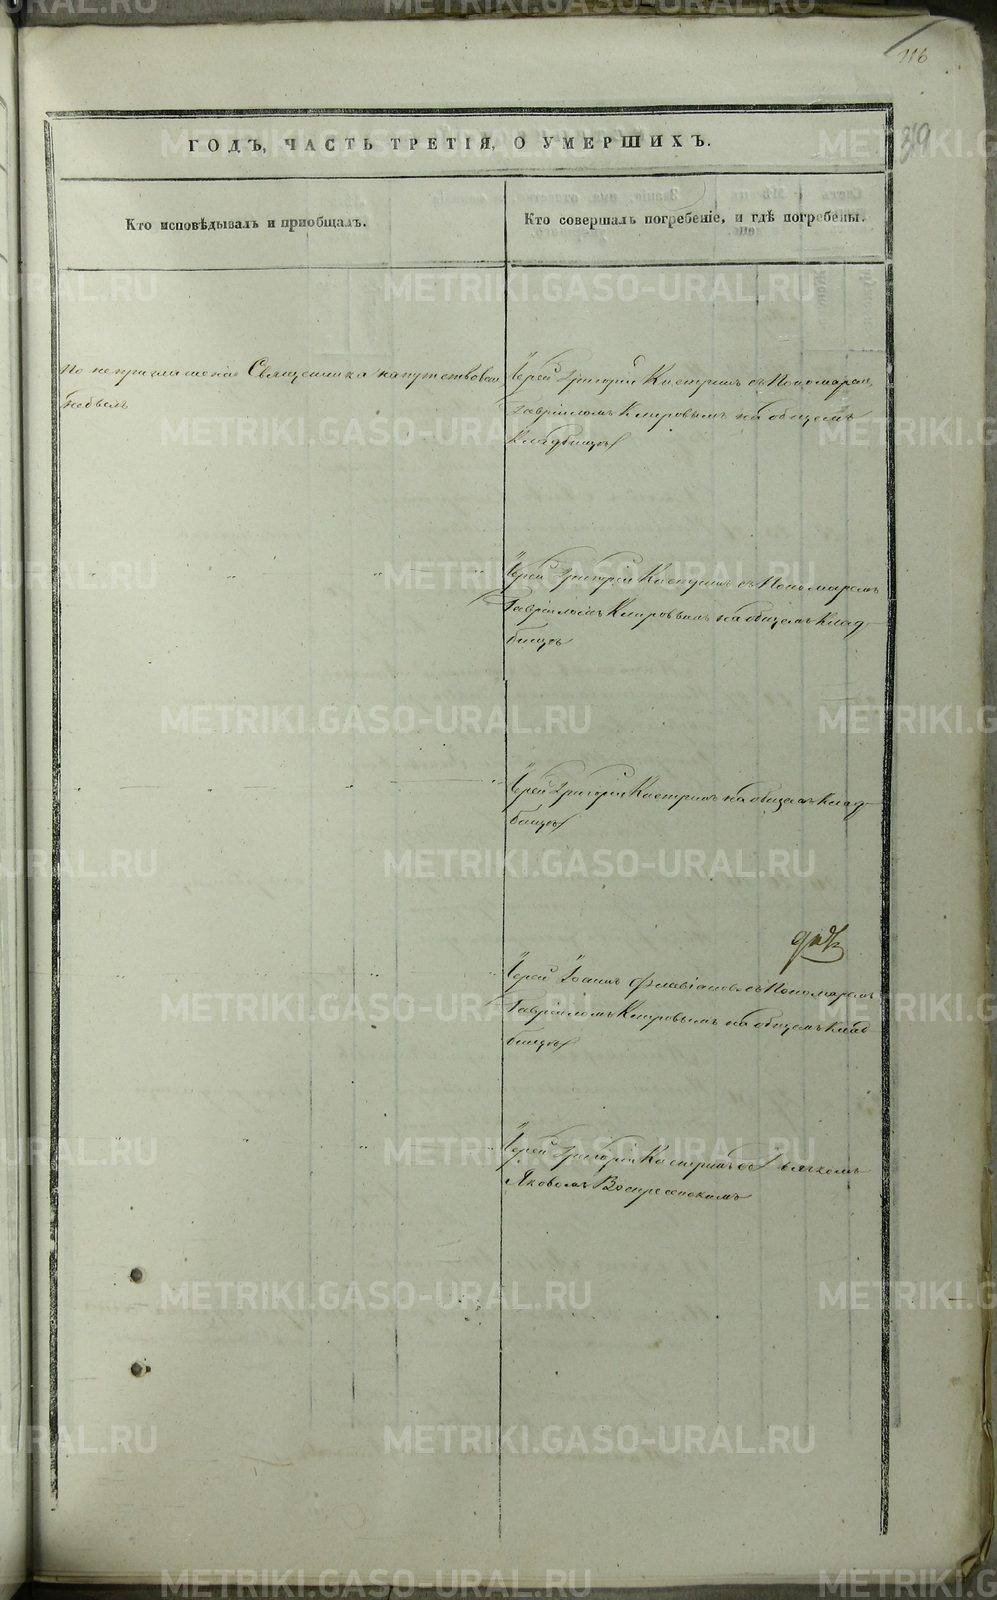 116
319
ГОДЪ, ЧАСТЬ ТРЕТІЯ, О УМЕРШИХЪ.
Кто исповѣдывалъ и пріобщалъ.
Кто совершалъ погребеніе, и гдѣ погребены.
По неприглашенію Священника напутствован
небылъ
Іерей Григорій Кастринъ съ Пономаремъ
Гавріиломъ Кипровымъ на общемъ
кладбищѣ
" " "
Іерей Григорій Кастринъ съ Пономаремъ
Гавріиломъ Кипровымъ на общемъ клад-
бищѣ
Іерей Григорій Кастринъ на общемъ клад-
бищѣ
Іерей Іоаннъ Флавіановъ съ Пономаремъ
Гавріиломъ Кипровымъ на общемъ клад
бищѣ
Іерей Григорій Кастринъ съ Дьячкомъ
Яковомъ Воскресенскимъ
METRIKI.GASO-URAL.RU